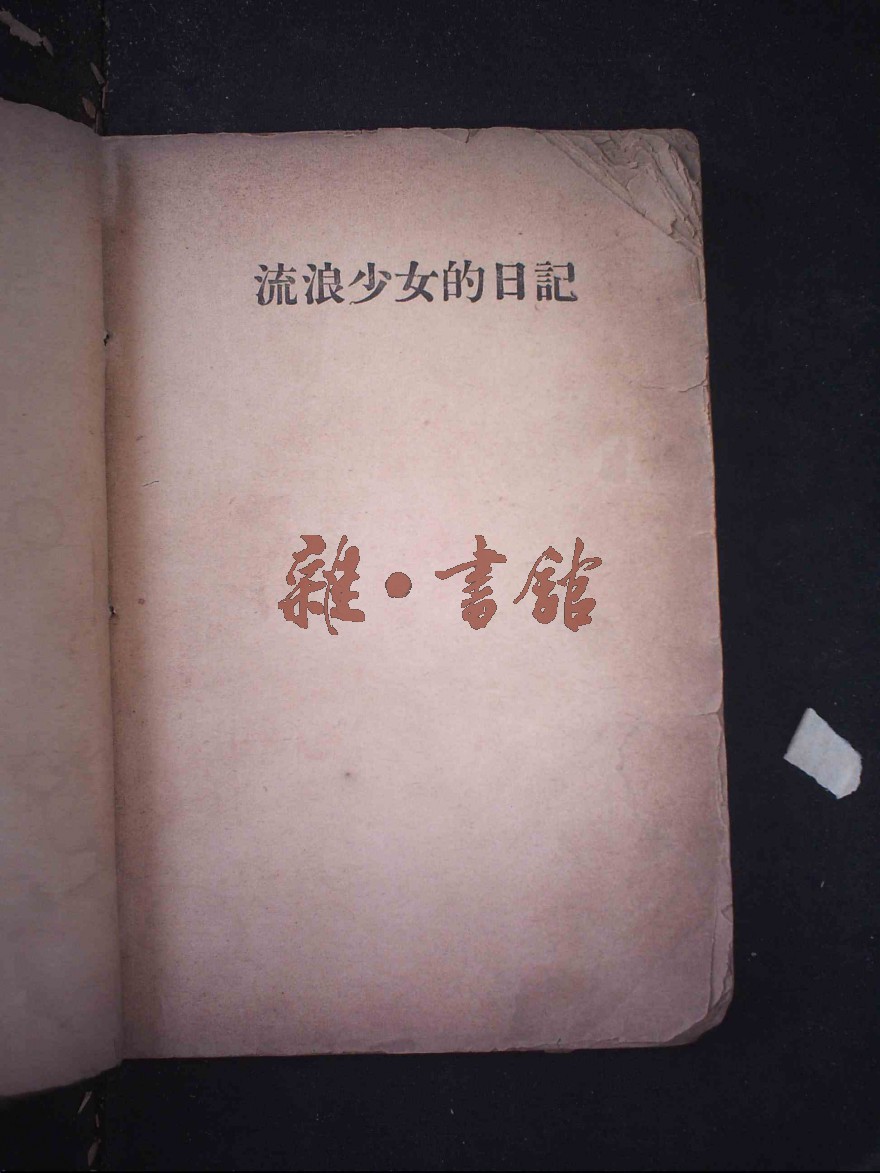 流浪少女的日記
雜·書館